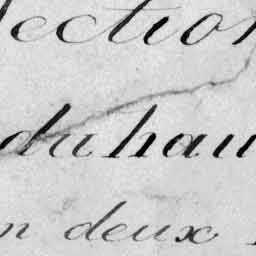 ection
du hau
n deux